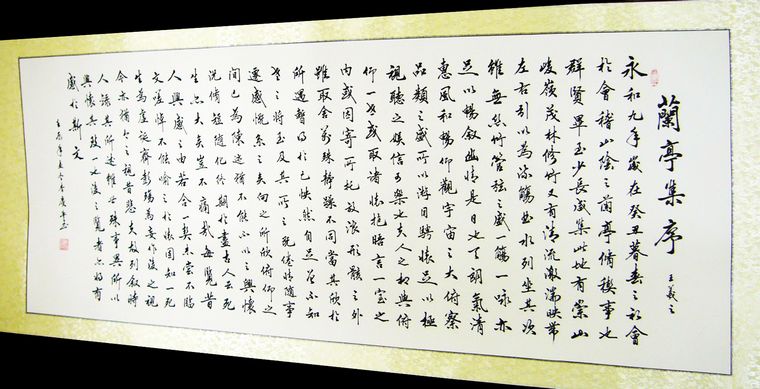 蘭亭集序
王羲之
永和九年歲在癸丑暮春之初會
於會稽山陰之蘭亭脩稧事也
群賢畢至少長咸集此地有崇山
峻嶺茂林修竹又有清流激湍映帶
左右引以為流觴曲水列坐其次
雖無絲竹管弦之盛一觴一詠亦
足以暢敘幽情是日也天朗氣清
惠風和暢仰觀宇宙之大俯察
品類之盛所以游目騁懷足以極
視聽之娛信可樂也夫人之相與俯
仰一世或取諸懷抱晤言一室之
內或因寄所託放浪形骸之外
雖取舍萬殊靜躁不同當其欣於
所遇暫得於己快然自足不知
老之將至及其所之既倦情隨事
遷感慨係之矣向之所欣俯仰之
間已為陳迹猶不能不以之興懷
況脩短隨化終期於盡古人云死
生亦大矣豈不痛哉每覽昔
人興感之由若合一契未嘗不臨
文嗟悼不能喻之於懷固知一死
生為虛誕齊彭殤為妄作後之視
今亦猶今之視昔悲夫故列敘時
人錄其所述雖世殊事異所以
興懷其致一也後之覽者亦將有
感於斯文